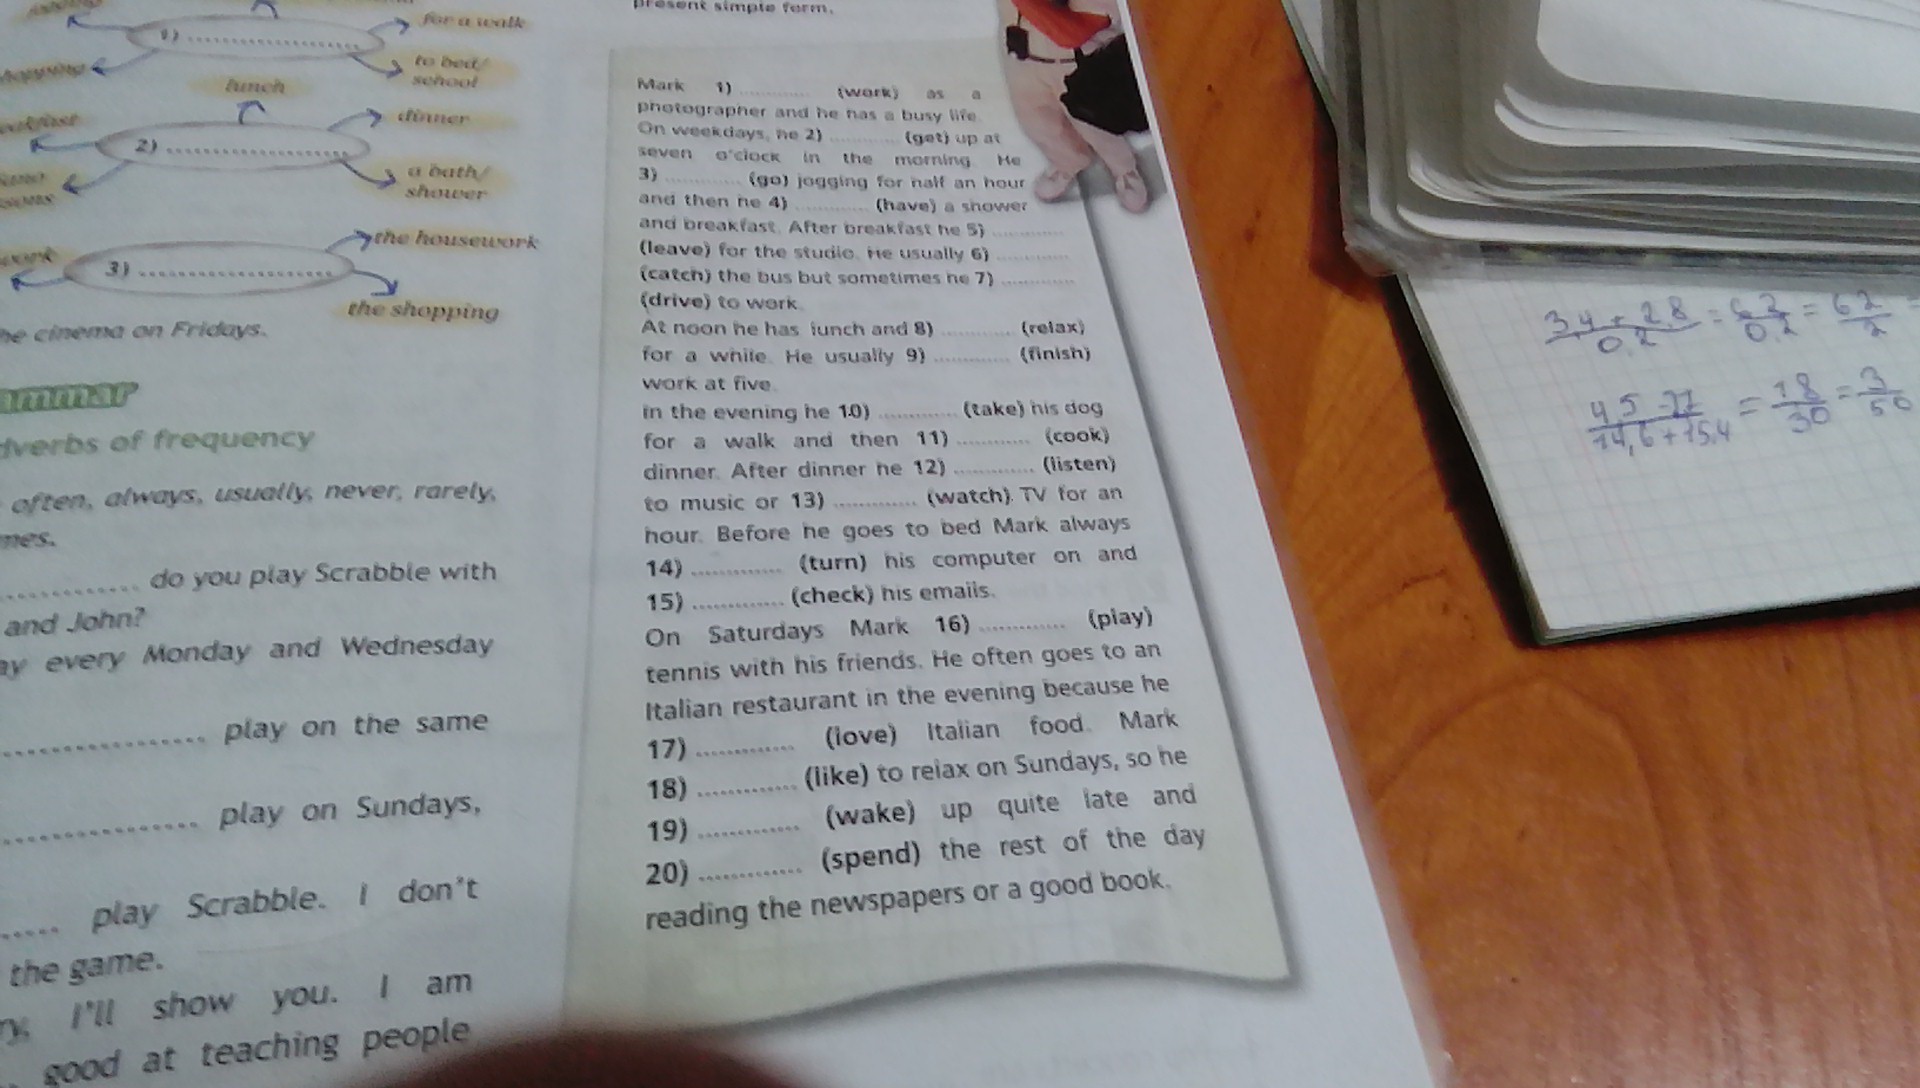 for a walk
1) ....................
to bed/
school
lunch
dinner
2) ....................
a bath/
shower
the housework
3) ....................
the shopping
cinema on Fridays.
of frequency
often, always, usually, never, rarely,
............ do you play Scrabble with
and John?
every Monday and Wednesday
.................. play on the same
.................. play on Sundays,
..... play Scrabble. I don't
the game.
I'll show you. I am
good at teaching people
present simple form.
Mark 1) ............ (work) as a
photographer and he has a busy life.
On weekdays, he 2) ............ (get) up at
seven o'clock in the morning. He
3) ............ (go) jogging for half an hour
and then he 4) ............ (have) a shower
and breakfast. After breakfast he 5) ............
(leave) for the studio. He usually 6) ............
(catch) the bus but sometimes he 7) ............
(drive) to work.
At noon he has lunch and 8) ............ (relax)
for a while. He usually 9) ............ (finish)
work at five.
In the evening he 10) ............ (take) his dog
for a walk and then 11) ............ (cook)
dinner. After dinner he 12) ............ (listen)
to music or 13) ............ (watch) TV for an
hour. Before he goes to bed Mark always
14) ............ (turn) his computer on and
15) ............ (check) his emails.
On Saturdays Mark 16) ............ (play)
tennis with his friends. He often goes to an
Italian restaurant in the evening because he
17) ............ (love) Italian food. Mark
18) ............ (like) to relax on Sundays, so he
19) ............ (wake) up quite late and
20) ............ (spend) the rest of the day
reading the newspapers or a good book.
3,4 + 2,8 / 0,2 = 6,2 / 0,2 = 62 / 2 =
45 - 27 / 14,6 + 15,4 = 18 / 30 = 3 / 50